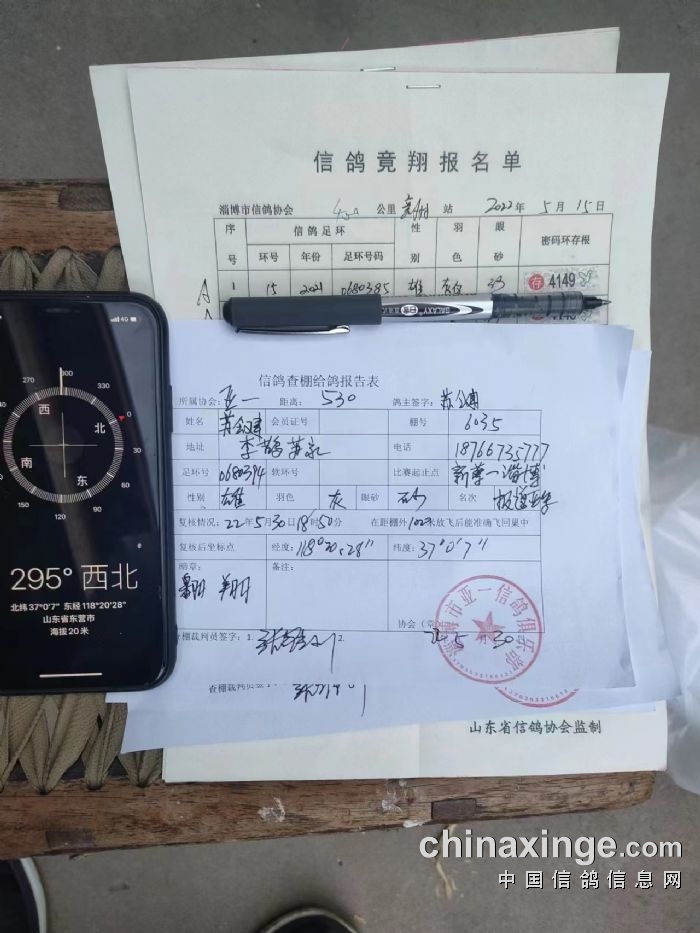 信鸽竟翔报名单
淄博市信鸽协会 400 公里 站 2022年5月15日
序号 信鸽足环 性别 羽色 眼砂 密码环存根
环号 年份 足环号码
1 15 2021 0680385 雄 灰 存 4149
GALAXY
信鸽查棚给鸽报告表
所属协会: 亚一 距离: 530 鸽主签字:
姓名 会员证号 棚号 6035
地址 电话 18766735777
足环号 0680394 软环号 比赛起止点 新乡—淄博
性别 雄 羽色 灰 眼砂 砂 名次
复核情况: 22年5月30日18时50分 在距棚外102米放飞后能准确飞回巢中
复核后坐标点 经度: 118°20′28" 纬度: 37°0′7"
鸽章: 备注:
翔
协会(章) 22 5月30
查棚裁判员签字: 1. 2.
淄博市亚一信鸽俱乐部
山东省信鸽协会监制
4G
270 300 330
240 0
210 30
180 60
150 120 90
西 北
南 东
295° 西北
北纬37°0'7" 东经118°20'28"
山东省东营市
海拔20米
chinaxinge.com
中国信鸽信息网